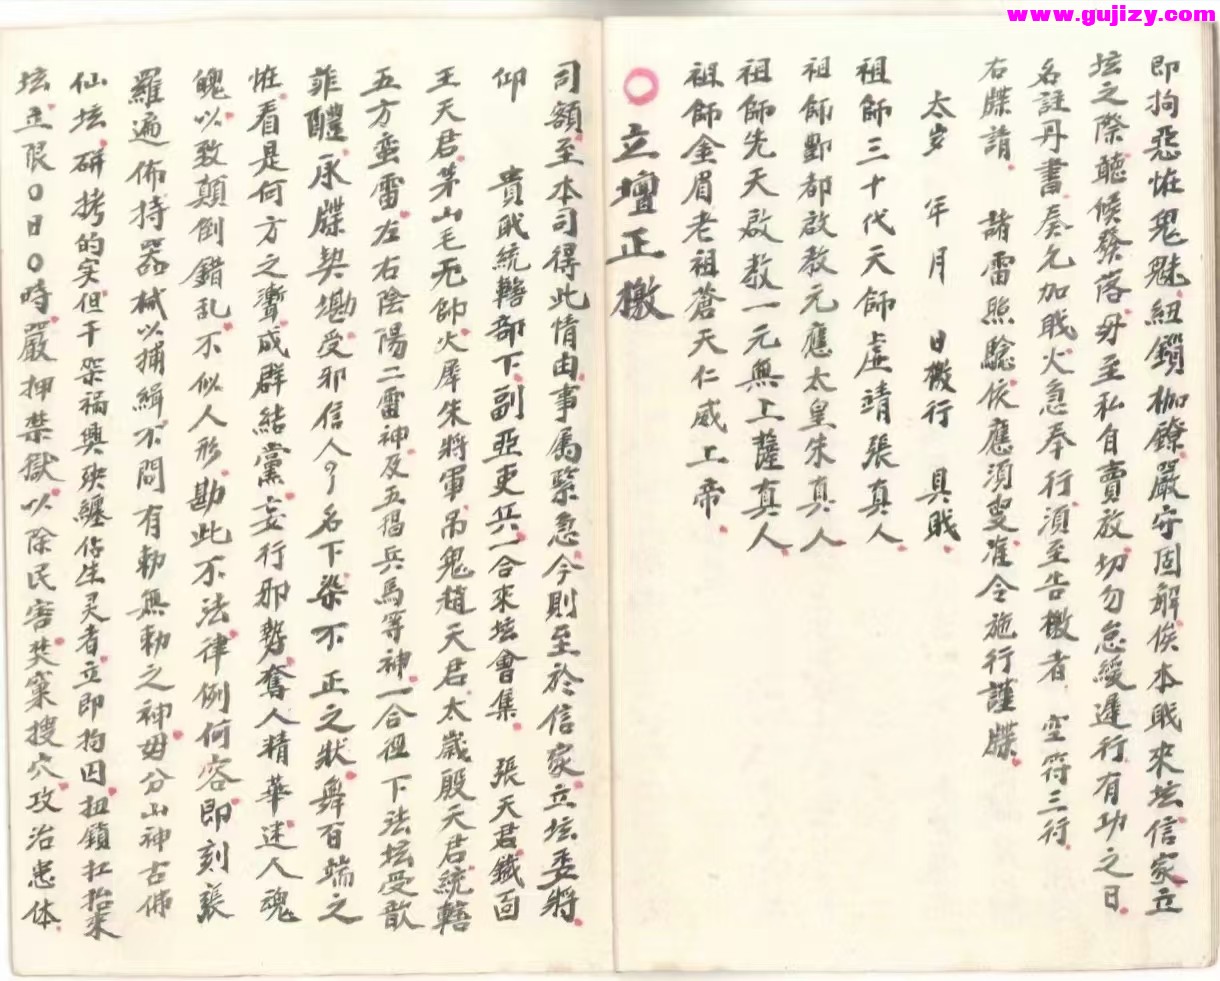 www.gujizy.com
即拘惡怪鬼魅紐鎖枷鐐嚴守固解俟本戝來坛信家立
坛之際聽候發落毋至私自賣放切勿怠緩遲行有功之日
名註丹書奏允加戝火急奉行湏至告檄者 空符三行
右牒請 諸雷照驗依應須至准令施行謹牒
太岁 年 月 日檄行 具戝
祖師三十代天師虛靖張真人
祖師酆都啟教元應太皇朱真人
祖師先天啟教一元無上薩真人
祖師金眉老祖蒼天仁威上帝
立壇正檄
司額至本司得此情由事屬緊急今則至於信家立坛委將
仰 貴戝統轄部下副亞吏兵一合來坛會集 張天君鐵面
王天君茅山毛元帥火犀朱將軍吊鬼趙天君太歲殷天君統轄
五方蛮雷左右陰陽二雷神及五猖兵馬等神一合徑下法坛受歆
菲醴承牒契勘受邪信人 名下染不正之狀舞百端之
怪看是何方之讐成群結黨妄行邪勢奪人精華迷人魂
魄以致顛倒錯乱不似人形勘此不法律例何容即刻張
羅遍佈持器械以捕緝不問有勅無勅之神毋分山神古佛
仙坛研拷的实但干架禍興殃纏估生灵者立即拘囚扭鎖扛抬來
坛立限〇日〇時嚴押禁獄以除民害焚窠搜穴攻治患体